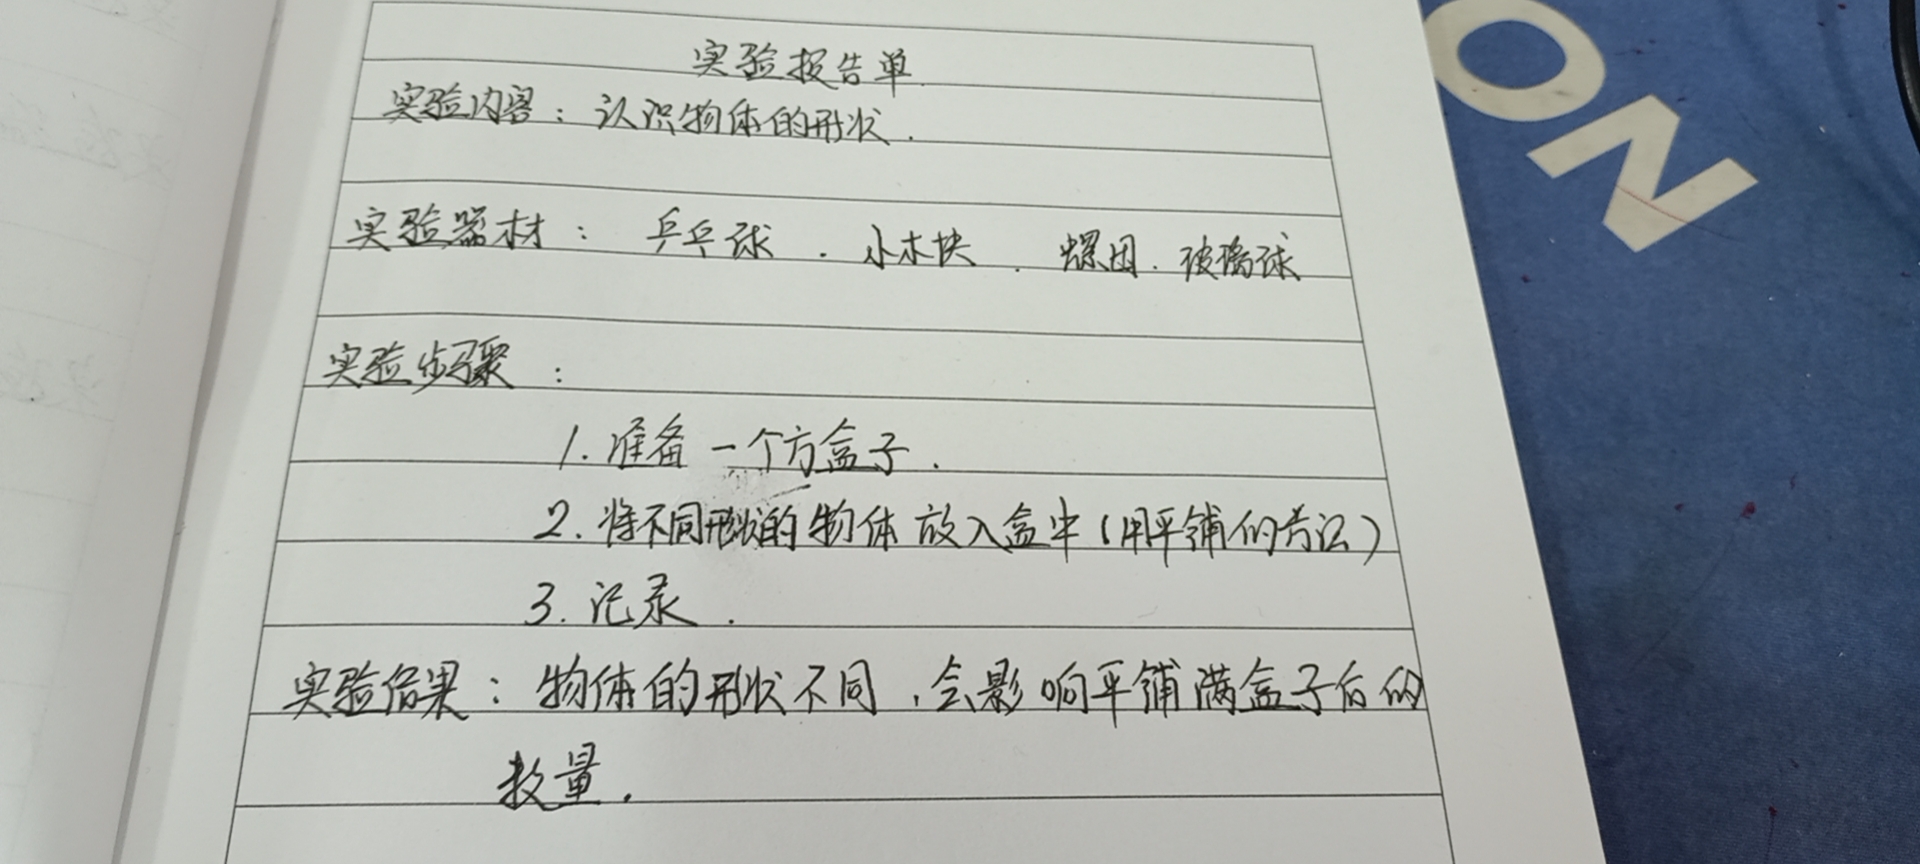 实验报告单
实验内容：认识物体的形状.
实验器材：乒乓球.小木块.螺因.玻璃球
实验步骤：
1.准备一个方盒子.
2.将不同形状的物体放入盒中(用平铺的方法)
3.记录.
实验结果：物体的形状不同,会影响平铺满盒子后的
数量.
ON